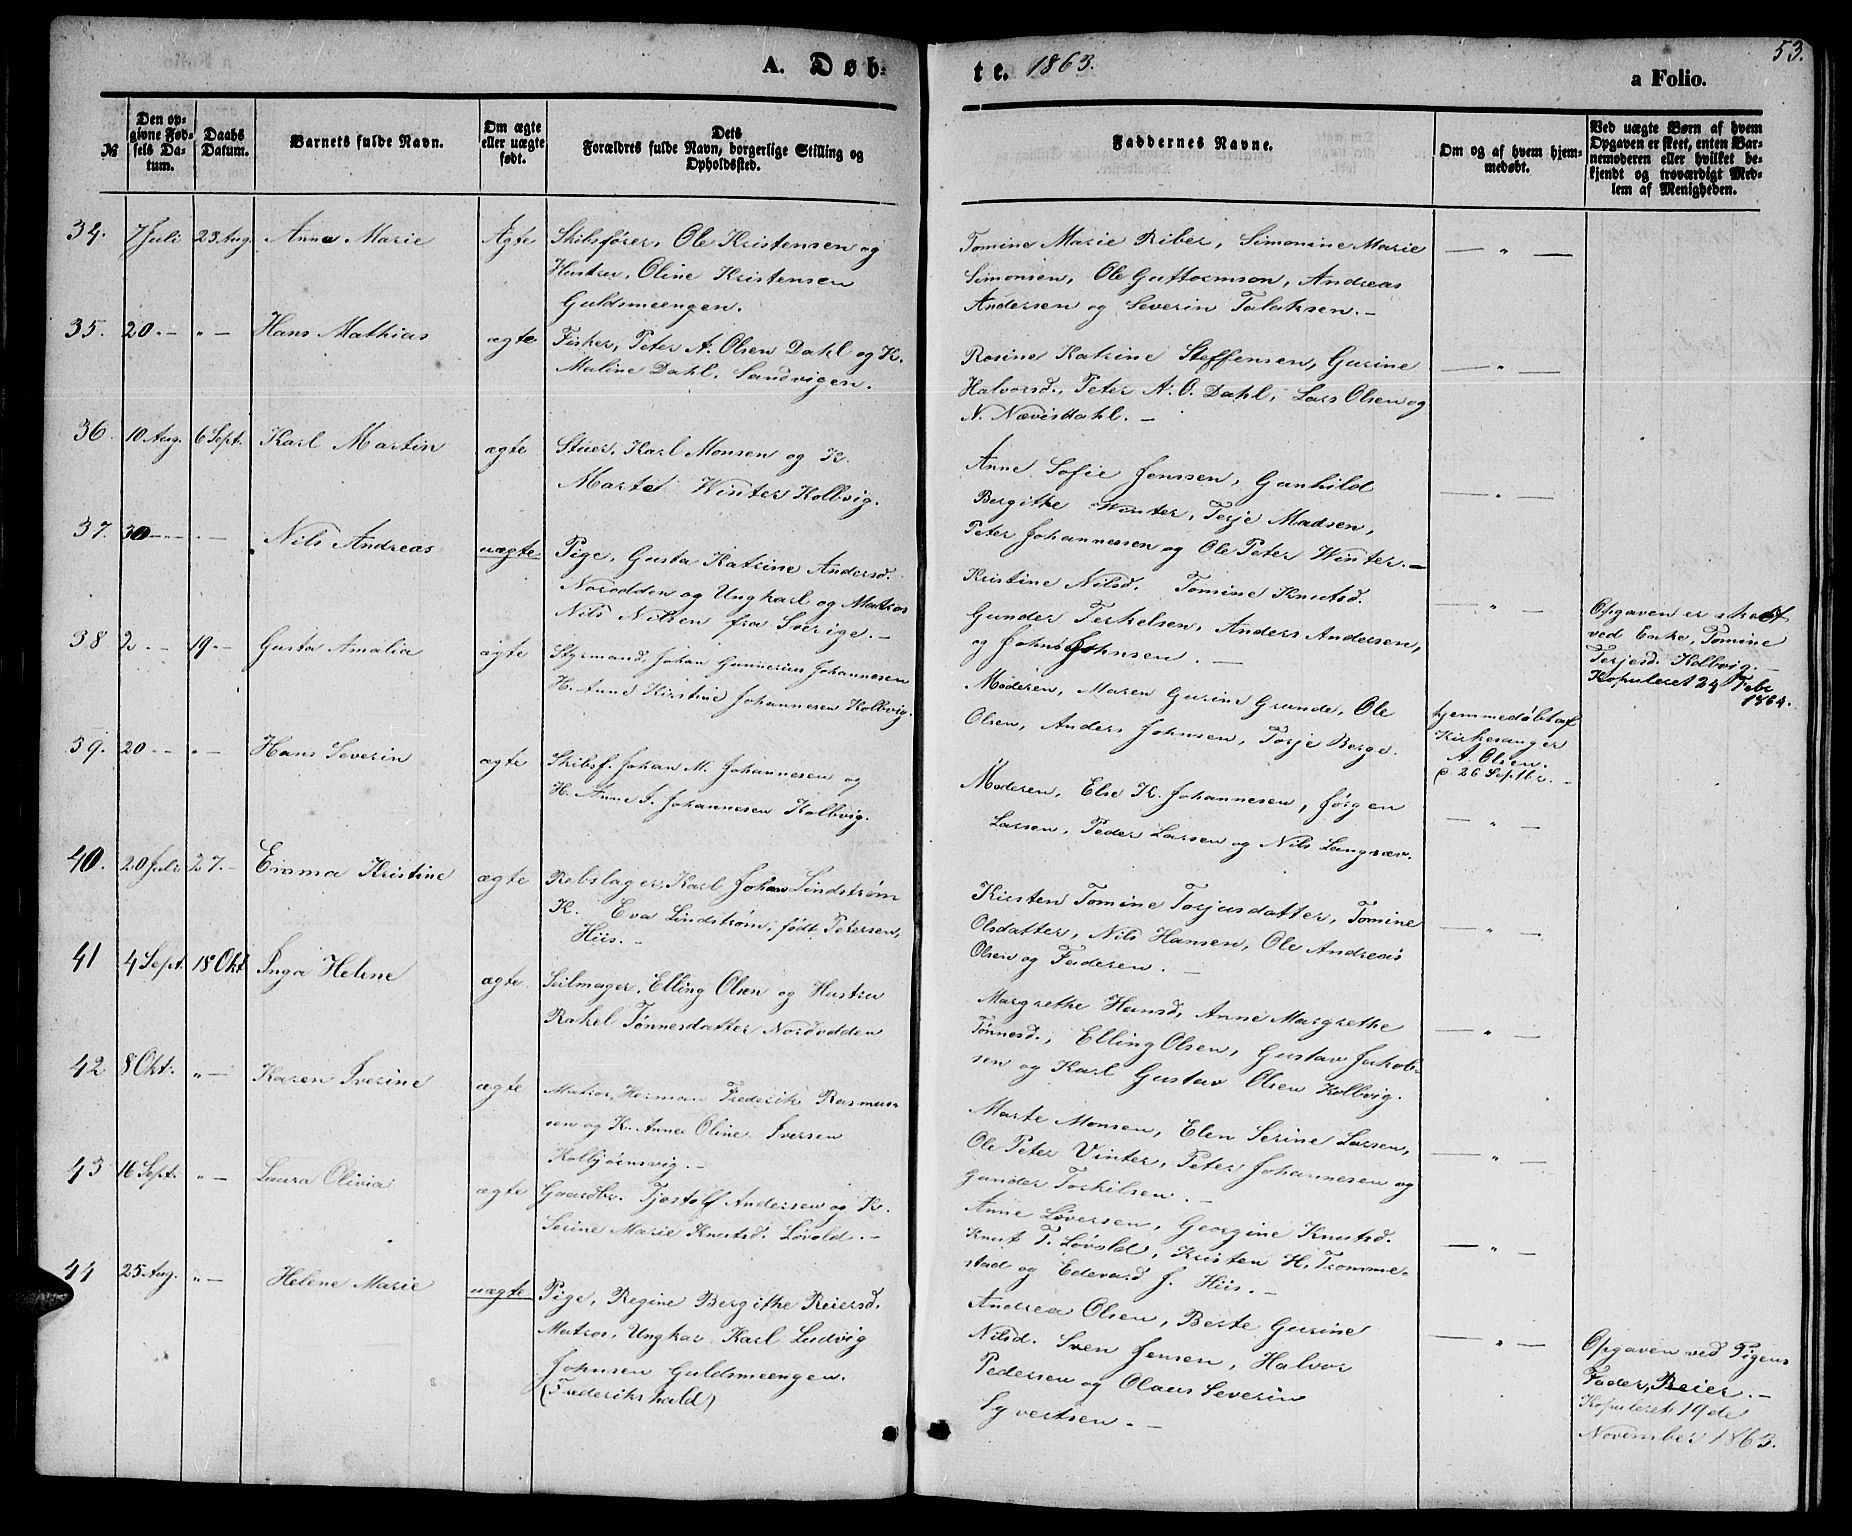 A. Døb-
te. 1863.
53.
a Folio.
№
Den op-
givne Fød-
sels Da-
tum.
Daabs
Datum.
Barnets fulde Navn.
Om ægte
eller uægte
født.
Dets
Forældres fulde Navn, borgerlige Stilling og
Opholdssted.
Faddernes Navne.
Om og af hvem hjem-
medøbt.
Ved uægte Børn af hvem
Opgaven er skeet, enten Bar-
nemoderen eller hvilket be-
kjendt og troværdigt Med-
lem af Menigheden.
34. 7 Juli 23 Aug. Anne Marie Ægte Skibsfører, Ole Kristensen og
Hustru, Oline Kristensen
Guldsmeengen.
Tomine Marie Riber, Simonine Marie
Simonsen, Ole Guttormson, Andreas
Andersen og Severin Talaksen. —
— " —
35. 20. — " — Hans Mathias ægte Fisker, Peter A. Olsen Dahl og K.
Maline Dahl, Sandvigen.
Rosine Katrine Steffensen, Gurine
Halvorsd., Peter A. O. Dahl, Lars Olsen og
N. Nævisdahl. —
— " —
36. 10 Aug. 6 Sept. Karl Martin ægte Stuer, Karl Monsen og K.
Marte Winter Kolbvig.
Anne Sofie Jenssen, Gunhild
Bergithe Winter, Terje Madsen,
Peter Johannessen og Ole Peter Winter. —
— " —
37. 30 — — " — Nils Andreas uægte Pige, Gusta Katrine Andersd.
Norodden og Ungkarl og Matros
Nils Nilsen fra Sverige. —
Kristine Nilsd. Tomine Knutsd.
Gunder Terkelsen, Anders Andersen,
og Johns Johnsen. —
— " —
Opgaven er skeet
ved Enke, Tomine
Terjesd. Kolbvig. —
Kopuleret 24 Febr
1864.
38 2 — — 19. — Gusta Amalia ægte Styrmand, Johan Gunnerius Johannesen
H. Anne Kirstine Johannesen Kolbvig.
Moderen, Maren Gurine Grunde, Ole
Olsen, Anders Johnsen, Torje Berge.
hjemmedøbt af
Kirkesanger
A. Olsen.
d 26 Septbr. —
39. 20 — — " — Hans Severin ægte Skibsf. Johan M. Johannesen og
H. Anne J. Johannesen Kolbvig.
Moderen, Else K. Johannesen, Jørgen
Larsen, Peder Larsen og Nils Langsæv.
— " —
40. 20 Juli 27. — Emma Kristine ægte Rebslager, Karl Johan Lindstrøm
K. Eva Lindstrøm, født Petersen,
Hiis. —
Kirsten Tomine Torjusdatter, Tomine
Olsdatter, Nils Hansen, Ole Andreas
Olsen og Faderen. —
— " —
41 4 Sept. 18 Okt Inga Helene ægte Seilmager, Elling Olsen og Hustru
Rakel Tønnesdatter Nordodden
Margrethe Hansd, Anne Margrethe
Tønnesd., Elling Olsen, Gustav Jakob-
sen og Karl Gustav Olsen Kolbvig.
— " —
42 8 Okt. " — Karen Iverine ægte Matros, Herman Frederik Rasmus-
sen og K. Anne Oline Iversen
Kolbjørnsvig. —
Marte Monsen, Elen Serine Larsen,
Ole Peter Vinter, Peter Johannesen og
Gunder Torkilsen. —
— " —
43 16 Sept. " — Laura Olivia ægte Gaardbr. Tjostolf Andersen og K.
Serine Marie Knutsd. Løvold. —
Anne Løversen, Georgine Knutsd.
Knut T. Løvold, Kristen H. Tromme-
stad og Edevard J. Hiis. —
— " —
44 25 Aug. " — Helene Marie uægte Pige, Regine Bergithe Reiersd.
Matros, Ungkar Karl Ludvig
Johnsen Guldsmeengen.
(Frederikshald)
Andrea Olsen, Berte Gurine
Nilsd. Sven Jensen, Halvor
Pedersen og Olaus Severin
Syvertsen. —
— " —
Opgaven ved Pigens
Fader, Reier. —
Kopuleret 19de
November 1863.